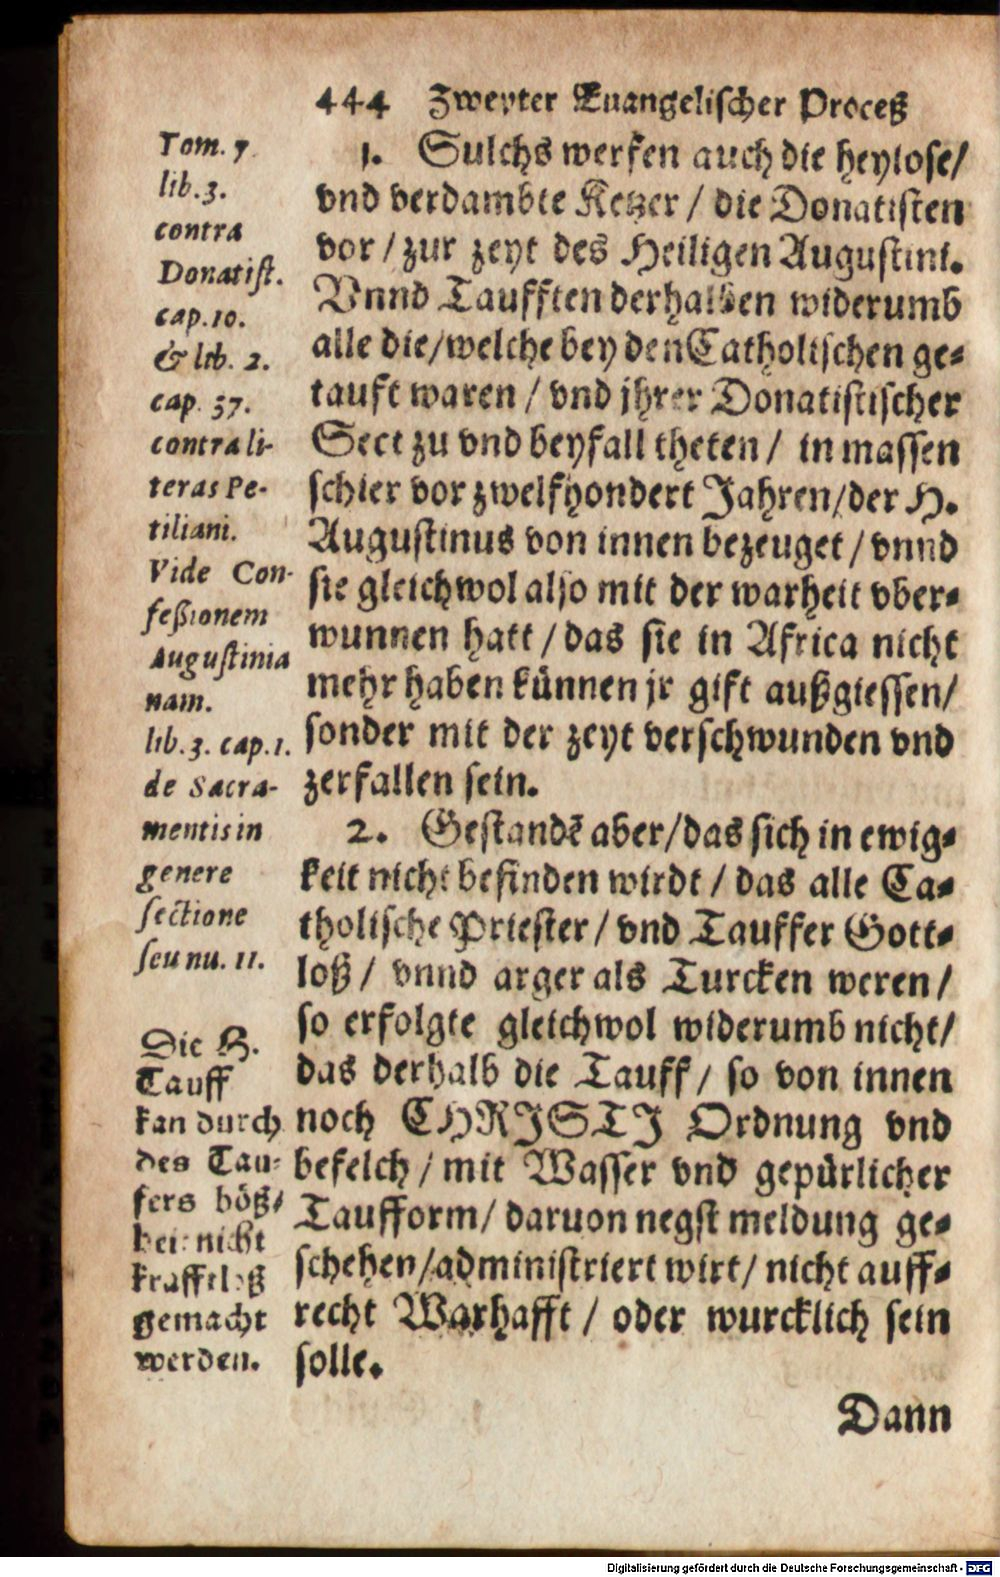 444 Zweyter Euangelischer Proceß
Tom. 7
lib. 3.
contra
Donatist.
cap. 10.
& lib. 2.
cap. 37.
contra li-
teras Pe-
tiliani.
Vide Con-
feßionem
Augustinia
nam.
lib. 3. cap. 1.
de Sacra-
mentis in
genere
sectione
seu nu. 11.
Die H.
Tauff
kan durch
des Tau-
fers böß-
heit nicht
krafftloß
gemacht
werden.
1. Sulchs werfen auch die heylose/
vnd verdambte Ketzer / die Donatisten
vor / zur zeyt des Heiligen Augustini.
Vnnd Taufften derhalben widerumb
alle die/welche bey den Catholischen ge-
tauft waren / vnd jhrer Donatistischer
Sect zu vnd beyfall theten / in massen
schier vor zwelfhondert Jahren/der H.
Augustinus von innen bezeuget / vnnd
sie gleichwol also mit der warheit vber-
wunnen hatt / das sie in Africa nicht
mehr haben künnen jr gift außgiessen/
sonder mit der zeyt verschwunden vnd
zerfallen sein.
2. Gestandē aber/das sich in ewig-
keit nicht befinden wirdt / das alle Ca-
tholische Priester / vnd Tauffer Gott-
loß / vnnd arger als Turcken weren /
so erfolgte gleichwol widerumb nicht/
das derhalb die Tauff / so von innen
noch CHRISTI Ordnung vnd
befelch / mit Wasser vnd gepürlicher
Taufform/ daruon negst meldung ge-
schehen/administriert wirt/ nicht auff-
recht Warhafft / oder wurcklich sein
solle.
Dann
Digitalisierung gefördert durch die Deutsche Forschungsgemeinschaft - DFG